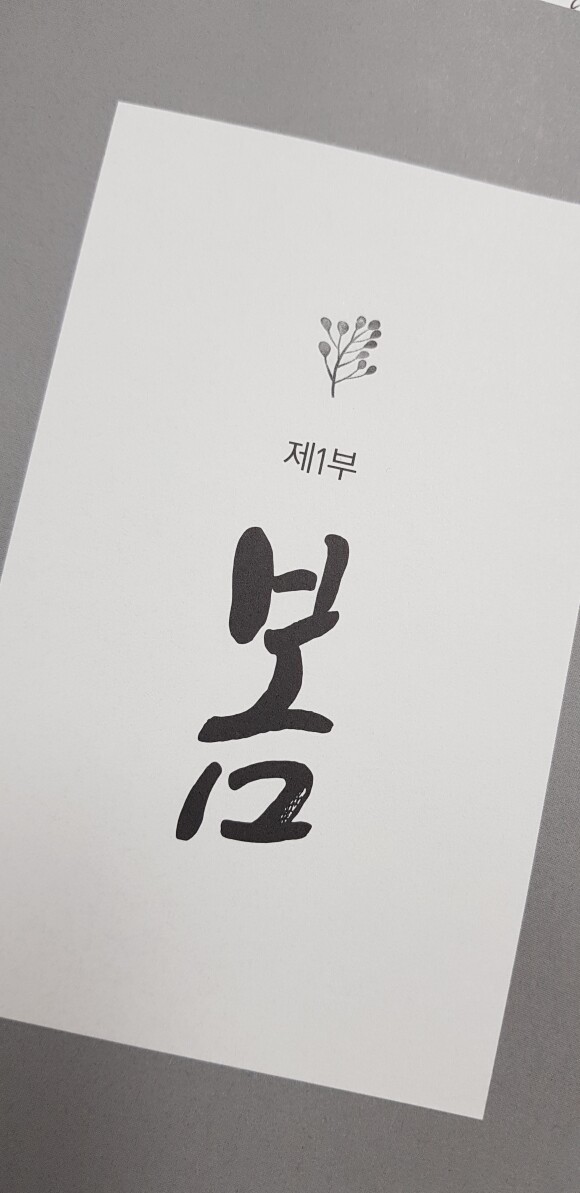 제1부
봄